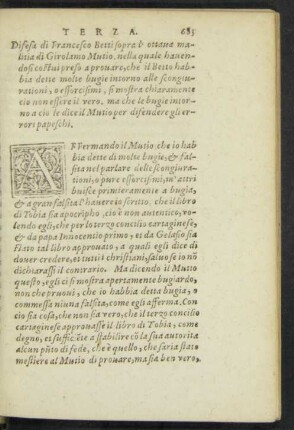 TERZA. 683
Difesa di Francesco Betti sopra l' ottaua ma-
litia di Girolamo Mutio, nella quale hauen-
dosi costui preso a prouare, che il Betto hab-
bia dette molte bugie intorno alle scongiu-
rationi, o essorcisimi, si mostra chiaramente
cio non essere il vero, ma che le bugie intor-
no a cio le dice il Mutio per difendere gli er-
rori papeschi.
AFFermando il Mutio che io hab
bia dette di molte bugie, & fal-
sita nel parlare delle scongiura-
tioni, o pure essorcismi, m'attri
buisce primieramente a bugia,
& a gran falsita l'hauere io scritto che il libro
di Tobia sia apocripho, cio è non autentico, vo-
lendo egli, che per lo terzo concilio cartaginese,
& da papa Innocentio primo, et da Gelasio sia
stato tal libro approuato, a quali egli dice di
douer credere, et tutti i christiani, saluo se io nō
dichiarassi il contrario. Ma dicendo il Mutio
questo, egli ci si mostra apertamente bugiardo,
non che pruoui, che io habbia detta bugia, o
commessa niuna falsita, come egli afferma. Con
cio sia cosa, che non sia vero, che il terzo concilio
cartaginese approuasse il libro di Tobia, come
degno, et sufficiēte a stabilire cō la sua autorita
alcun pūto di fede, che è quello, che saria stato
mostiero al Mutio di prouare, ma sia ben vero,